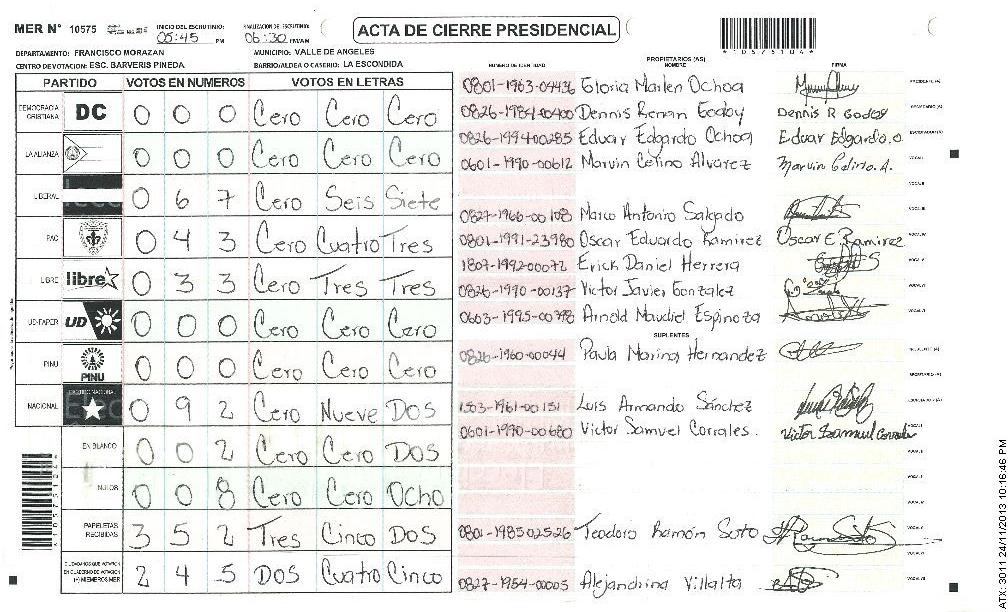 MER N° 10575 INICIO DEL ESCRUTINIO: 05:45 PM FINALIZACION DEL ESCRUTINIO: 06:30 PM/AM
ACTA DE CIERRE PRESIDENCIAL
*10575104*
DEPARTAMENTO: FRANCISCO MORAZAN MUNICIPIO: VALLE DE ANGELES
CENTRO DE VOTACION: ESC. BARVERIS PINEDA BARRIO/ALDEA O CASERIO: LA ESCONDIDA
PARTIDO VOTOS EN NUMEROS VOTOS EN LETRAS
DEMOCRACIA CRISTIANA DC 0 0 0 Cero Cero Cero
LA ALIANZA 0 0 0 Cero Cero Cero
LIBERAL 0 6 7 Cero Seis Siete
PAC 0 4 3 Cero Cuatro Tres
LIBRE libre 0 3 3 Cero Tres Tres
UD-FAPER UD 0 0 0 Cero Cero Cero
PINU PINU 0 0 0 Cero Cero Cero
NACIONAL 0 9 2 Cero Nueve Dos
EN BLANCO 0 0 2 Cero Cero Dos
NULOS 0 0 8 Cero Cero Ocho
PAPELETAS RECIBIDAS 3 5 2 Tres Cinco Dos
CIUDADANOS QUE VOTARON EN CUADERNO DE VOTACION (+) MIEMBROS MER 2 4 5 Dos Cuatro Cinco
PROPIETARIOS (AS)
NUMERO DE IDENTIDAD NOMBRE FIRMA
0801-1963-04436 Gloria Marlen Ochoa PRESIDENTE (A)
0826-1984-00400 Dennis Renan Godoy Dennis R Godoy SECRETARIO (A)
0826-1994-00285 Eduar Edgardo Ochoa Eduar Edgardo. O. ESCRUTADOR (A)
0601-1990-00612 Marvin Celino Alvarez Marvin Celino. A. VOCAL I
VOCAL II
0827-1966-00108 Marco Antonio Salgado VOCAL III
0801-1991-23980 Oscar Eduardo Ramirez Oscar E. Ramirez VOCAL IV
1807-1992-00072 Erick Daniel Herrera VOCAL V
0826-1990-00137 Victor Javier Gonzalez VOCAL VI
0603-1995-00798 Arnold Maudiel Espinoza VOCAL VII
SUPLENTES
0826-1960-00044 Paula Marina Hernandez PRESIDENTE (A)
SECRETARIO (A)
1503-1961-00151 Luis Armando Sánchez ESCRUTADOR (A)
0601-1990-00680 Victor Samuel Corrales. Victor Samuel Corrales VOCAL I
VOCAL II
VOCAL III
VOCAL IV
0801-1985-02526 Teodoro Ramón Soto VOCAL V
VOCAL VI
0827-1954-00005 Alejandrina Villalta VOCAL VII
ATX-3011 24/11/2013 10:16:46 PM